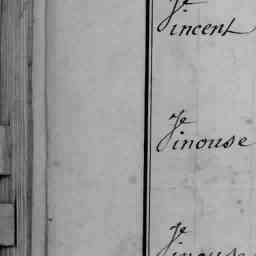 Je
incent
Je
inouse
Je
inouse